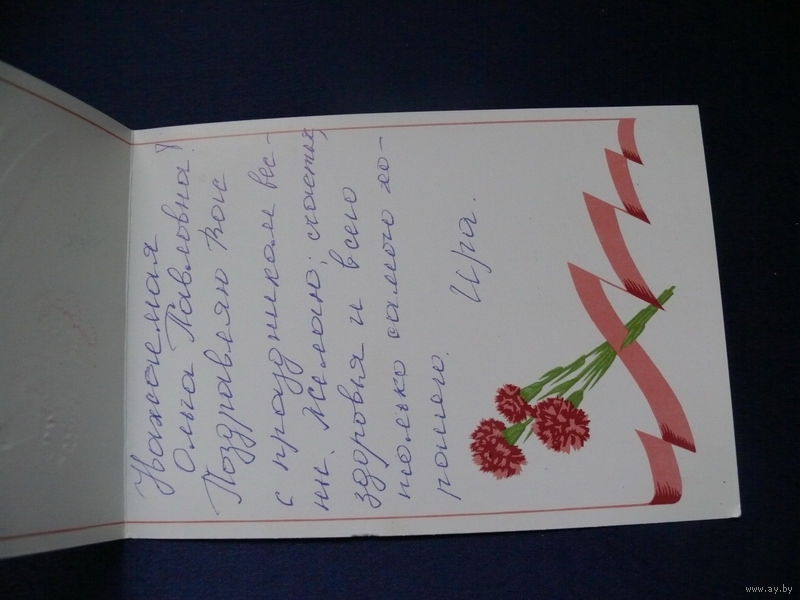 Уважаемая
Ольга Павловна!
Поздравляю Вас
с праздником вес-
ны. Желаю, счастья,
здоровья и всего
только самого хо-
рошего.
Ира.
www.ay.by